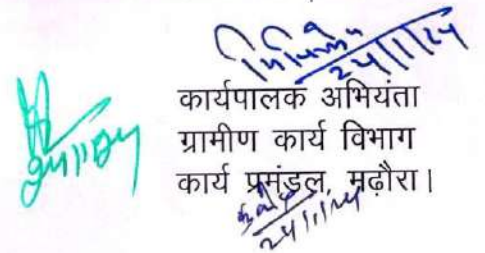 24/1/24
कार्यपालक अभियंता
ग्रामीण कार्य विभाग
कार्य प्रमंडल, मढ़ौरा।
24/1/24